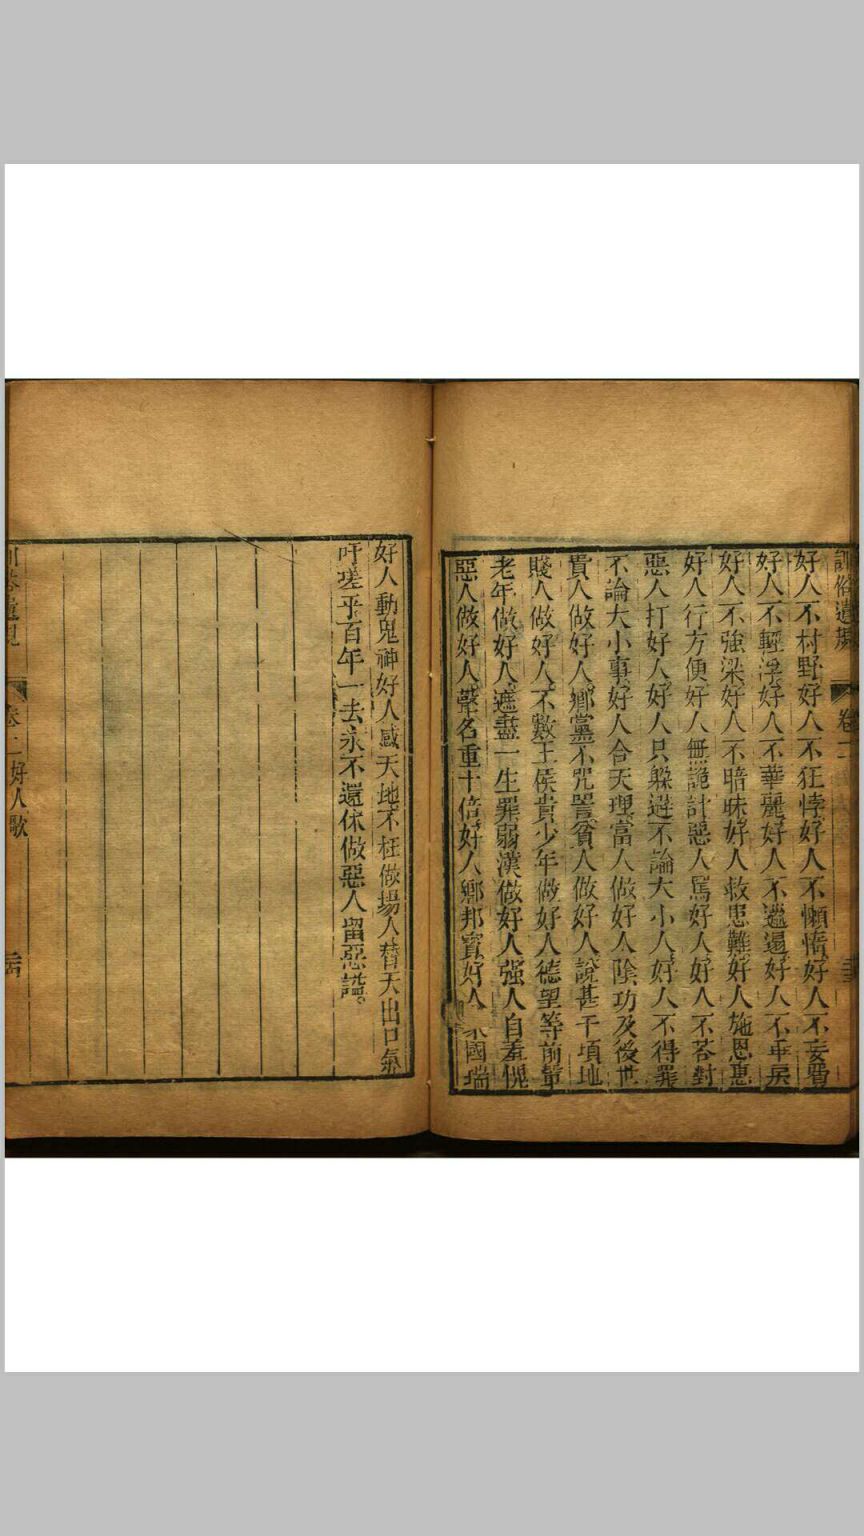 訓俗遺規 卷二
好人不村野好人不狂悖好人不懶惰好人不妄費
好人不輕浮好人不華麗好人不邋遢好人不乖戾
好人不強梁好人不暗昧好人救患難好人施恩惠
好人行方便好人無詭計惡人罵好人好人不荅對
惡人打好人好人只躱避不論大小人好人不得罪
不論大小事好人合天理富人做好人陰功及後世
貴人做好人鄉黨不咒詈貧人做好人說甚千頃地
賤人做好人不數王侯貴少年做好人德望等前輩
老年做好人遮盡一生罪弱漢做好人强人自羞愧
惡人做好人聲名重十倍好人鄉邦寳好人 國瑞
好人動鬼神好人感天地不枉做塲人替天出口氣
吁嗟乎百年一去永不還休做惡人留惡譜
卷二 好人歌